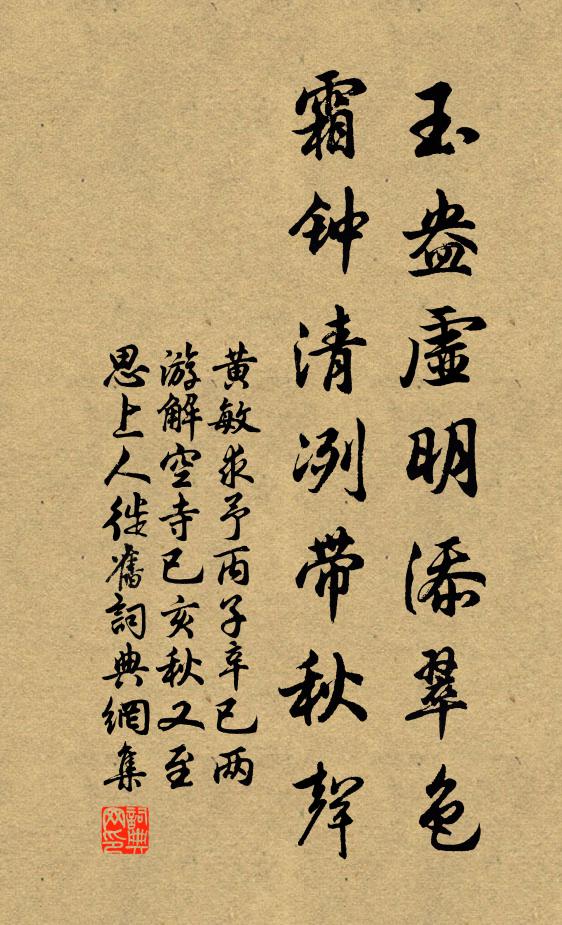 玉盎虚明添翠色
霜钟清冽带秋声
黄敏求予丙子辛巳两
游解空寺已亥秋又至
思上人徙旧詞典網集
詞典網印